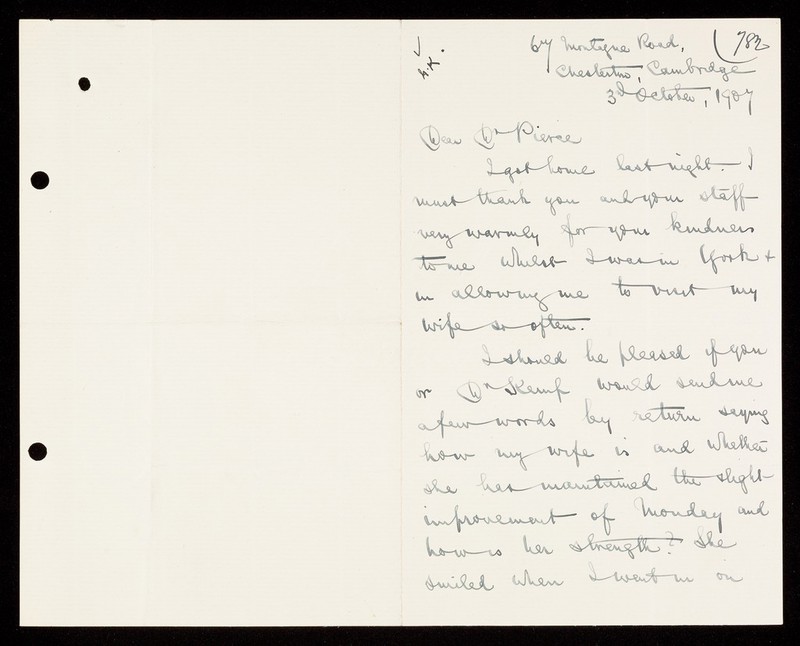 782
67 Montague Road,
Chesterton, Cambridge
3rd October, 1907
Dear Dr Pierce
I got home last night. I
must thank you and your staff
very warmly for your kindness
to me whilst I was in York +
in allowing me to visit my
wife so often.
I should be pleased if you
or Dr Kemp would send me
a few words by return saying
how my wife is and whether
she has maintained the slight
improvement of Monday and
how is her strength? She
smiled when I went in on